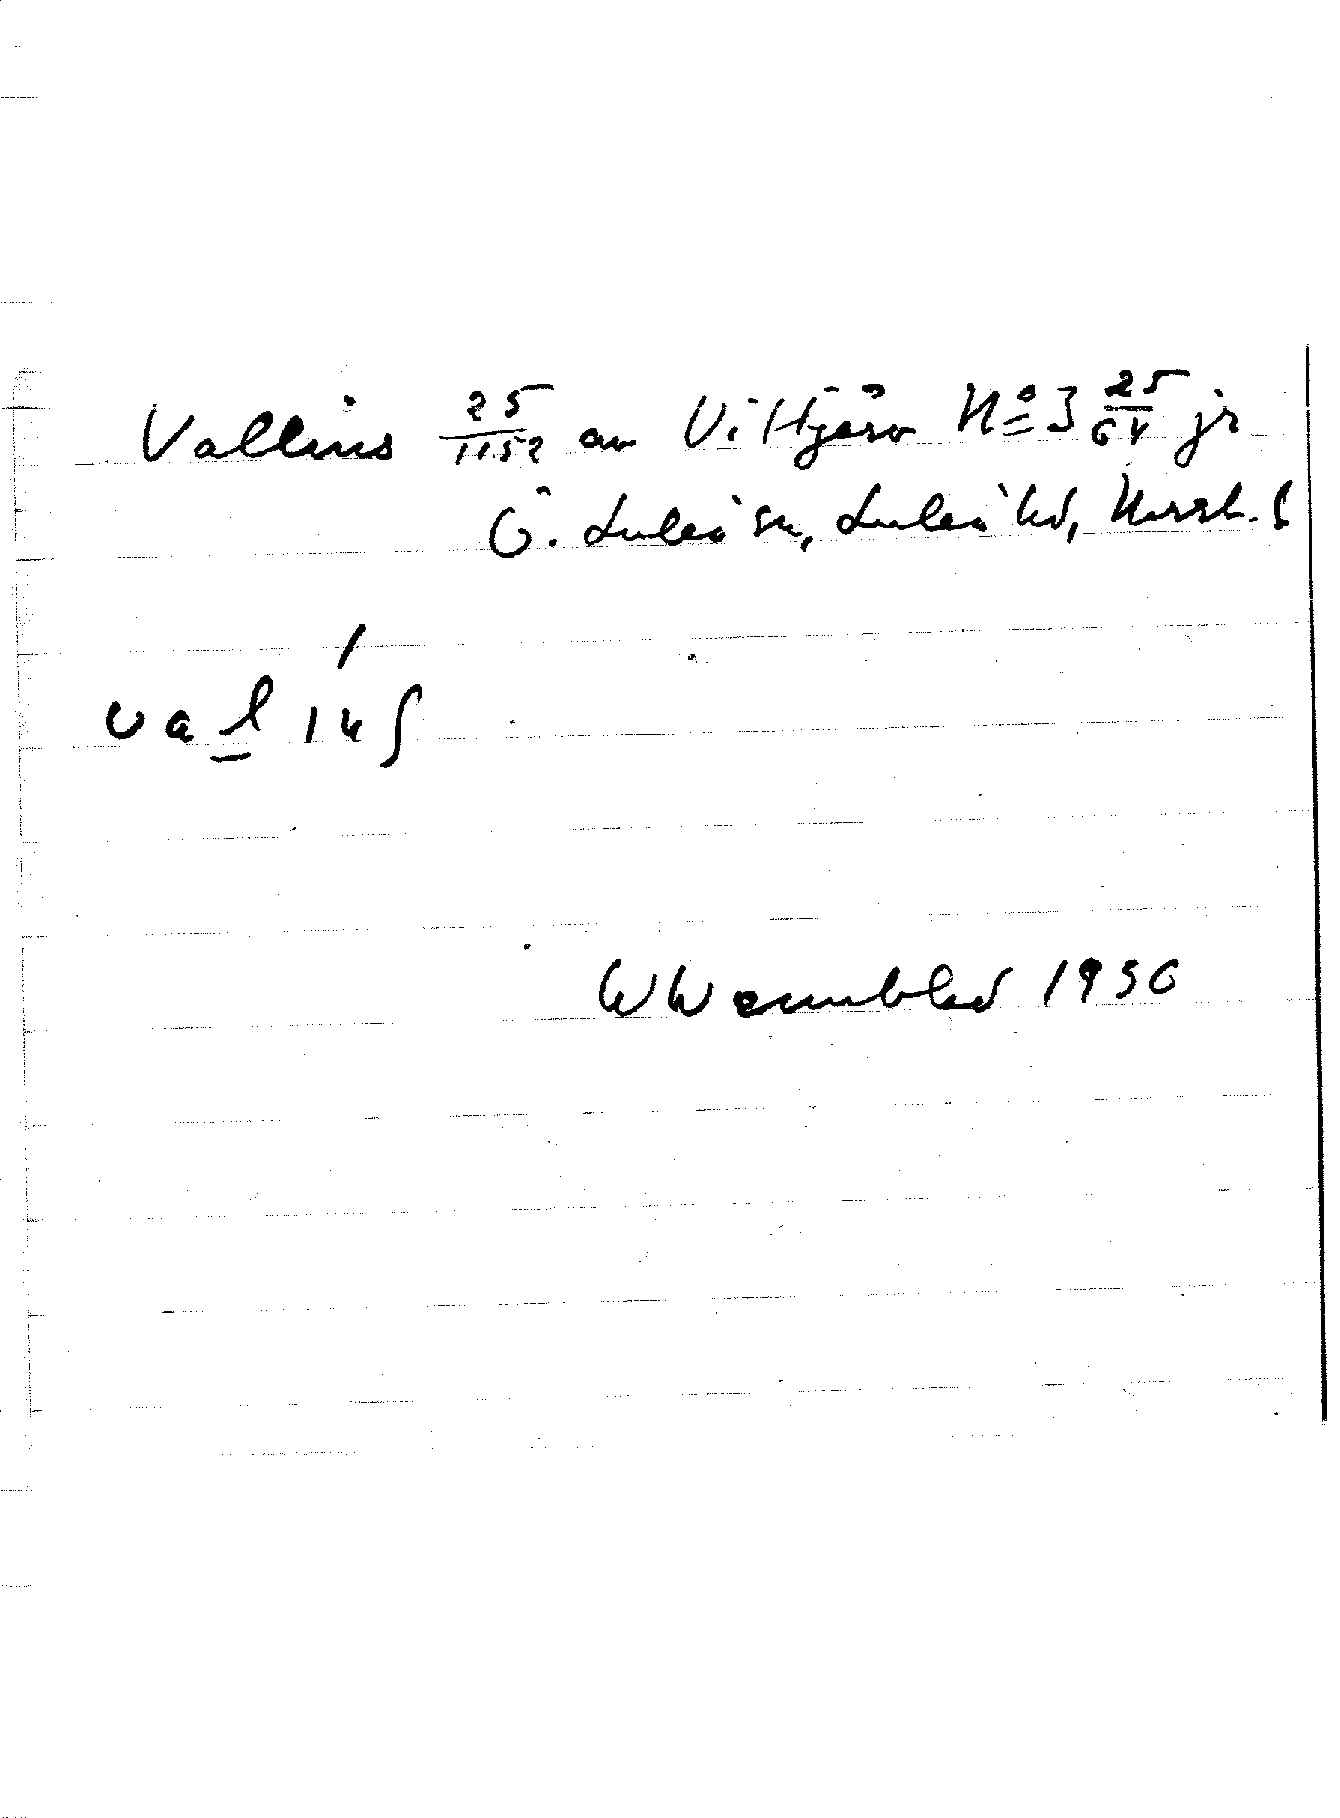 Vallins 25/1152 av Vittjärv No 3 25/64 jr
Ö. Luleå sn, Luleå hd, Norrb. l
valinʃ
W Wennblad 1936